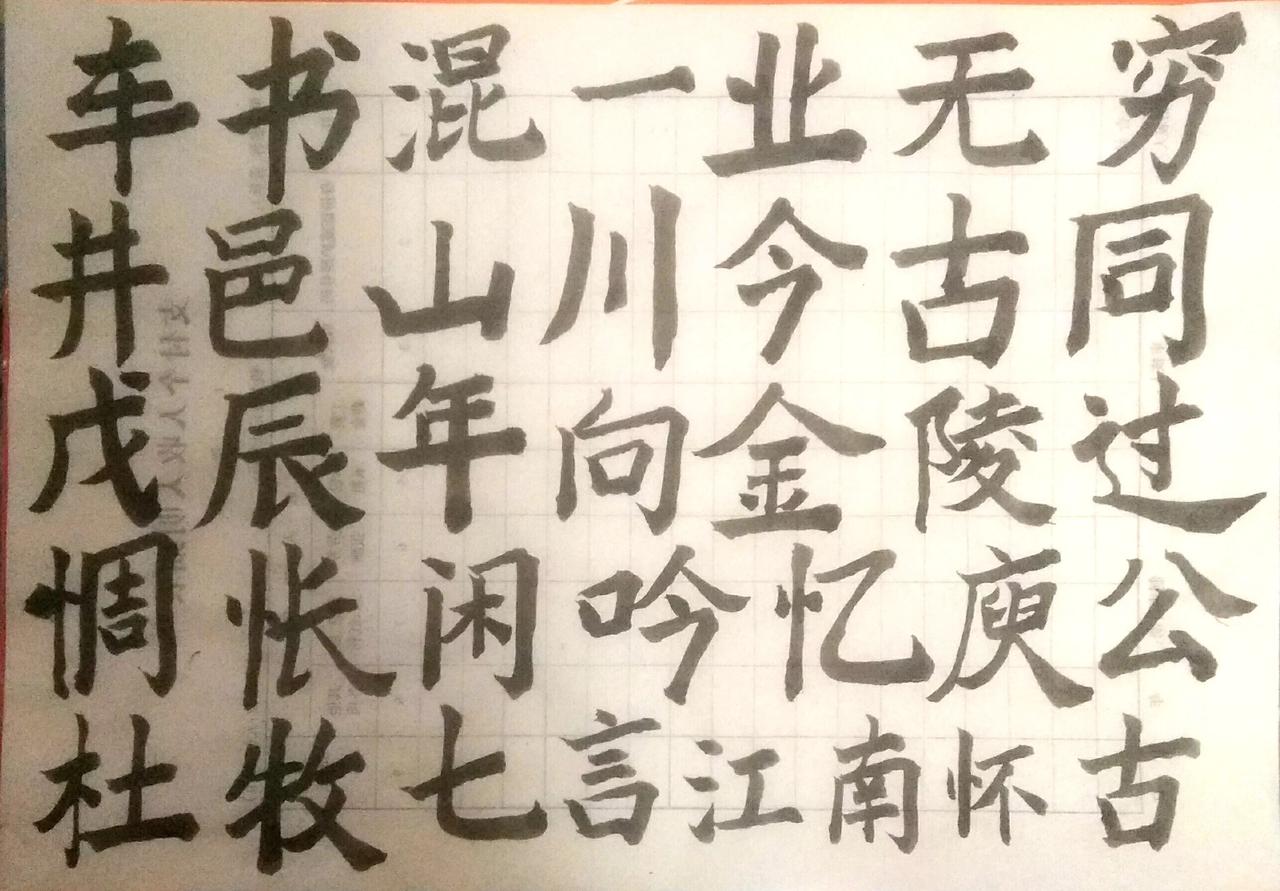 车书混一业无穷
井邑山川今古同
戊辰年向金陵过
惆怅闲吟忆庾公
杜牧七言江南怀古